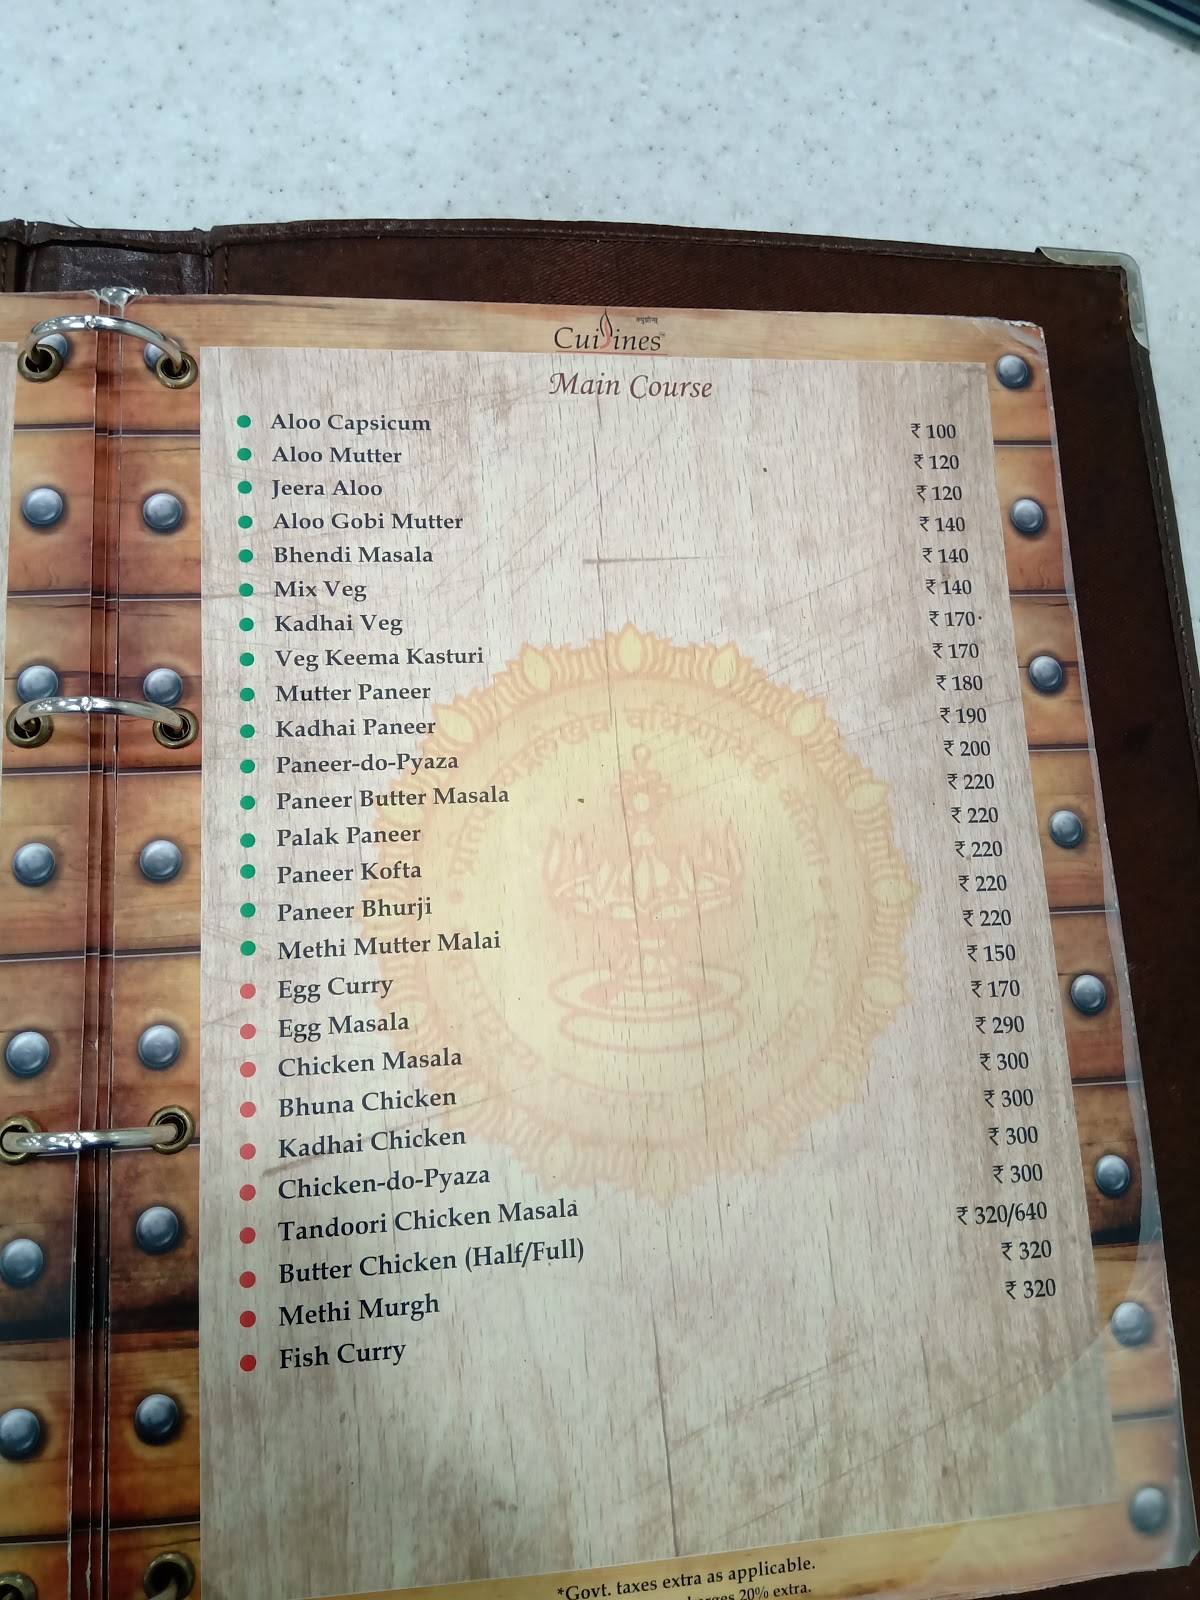 Cuisines™ क्युझीन्स्
Main Course
Aloo Capsicum ₹ 100
Aloo Mutter ₹ 120
Jeera Aloo ₹ 120
Aloo Gobi Mutter ₹ 140
Bhendi Masala ₹ 140
Mix Veg ₹ 140
Kadhai Veg ₹ 170
Veg Keema Kasturi ₹ 170
Mutter Paneer ₹ 180
Kadhai Paneer ₹ 190
Paneer-do-Pyaza ₹ 200
Paneer Butter Masala ₹ 220
Palak Paneer ₹ 220
Paneer Kofta ₹ 220
Paneer Bhurji ₹ 220
Methi Mutter Malai ₹ 220
Egg Curry ₹ 150
Egg Masala ₹ 170
Chicken Masala ₹ 290
Bhuna Chicken ₹ 300
Kadhai Chicken ₹ 300
Chicken-do-Pyaza ₹ 300
Tandoori Chicken Masala ₹ 300
Butter Chicken (Half/Full) ₹ 320/640
Methi Murgh ₹ 320
Fish Curry ₹ 320
*Govt. taxes extra as applicable.
20% extra.